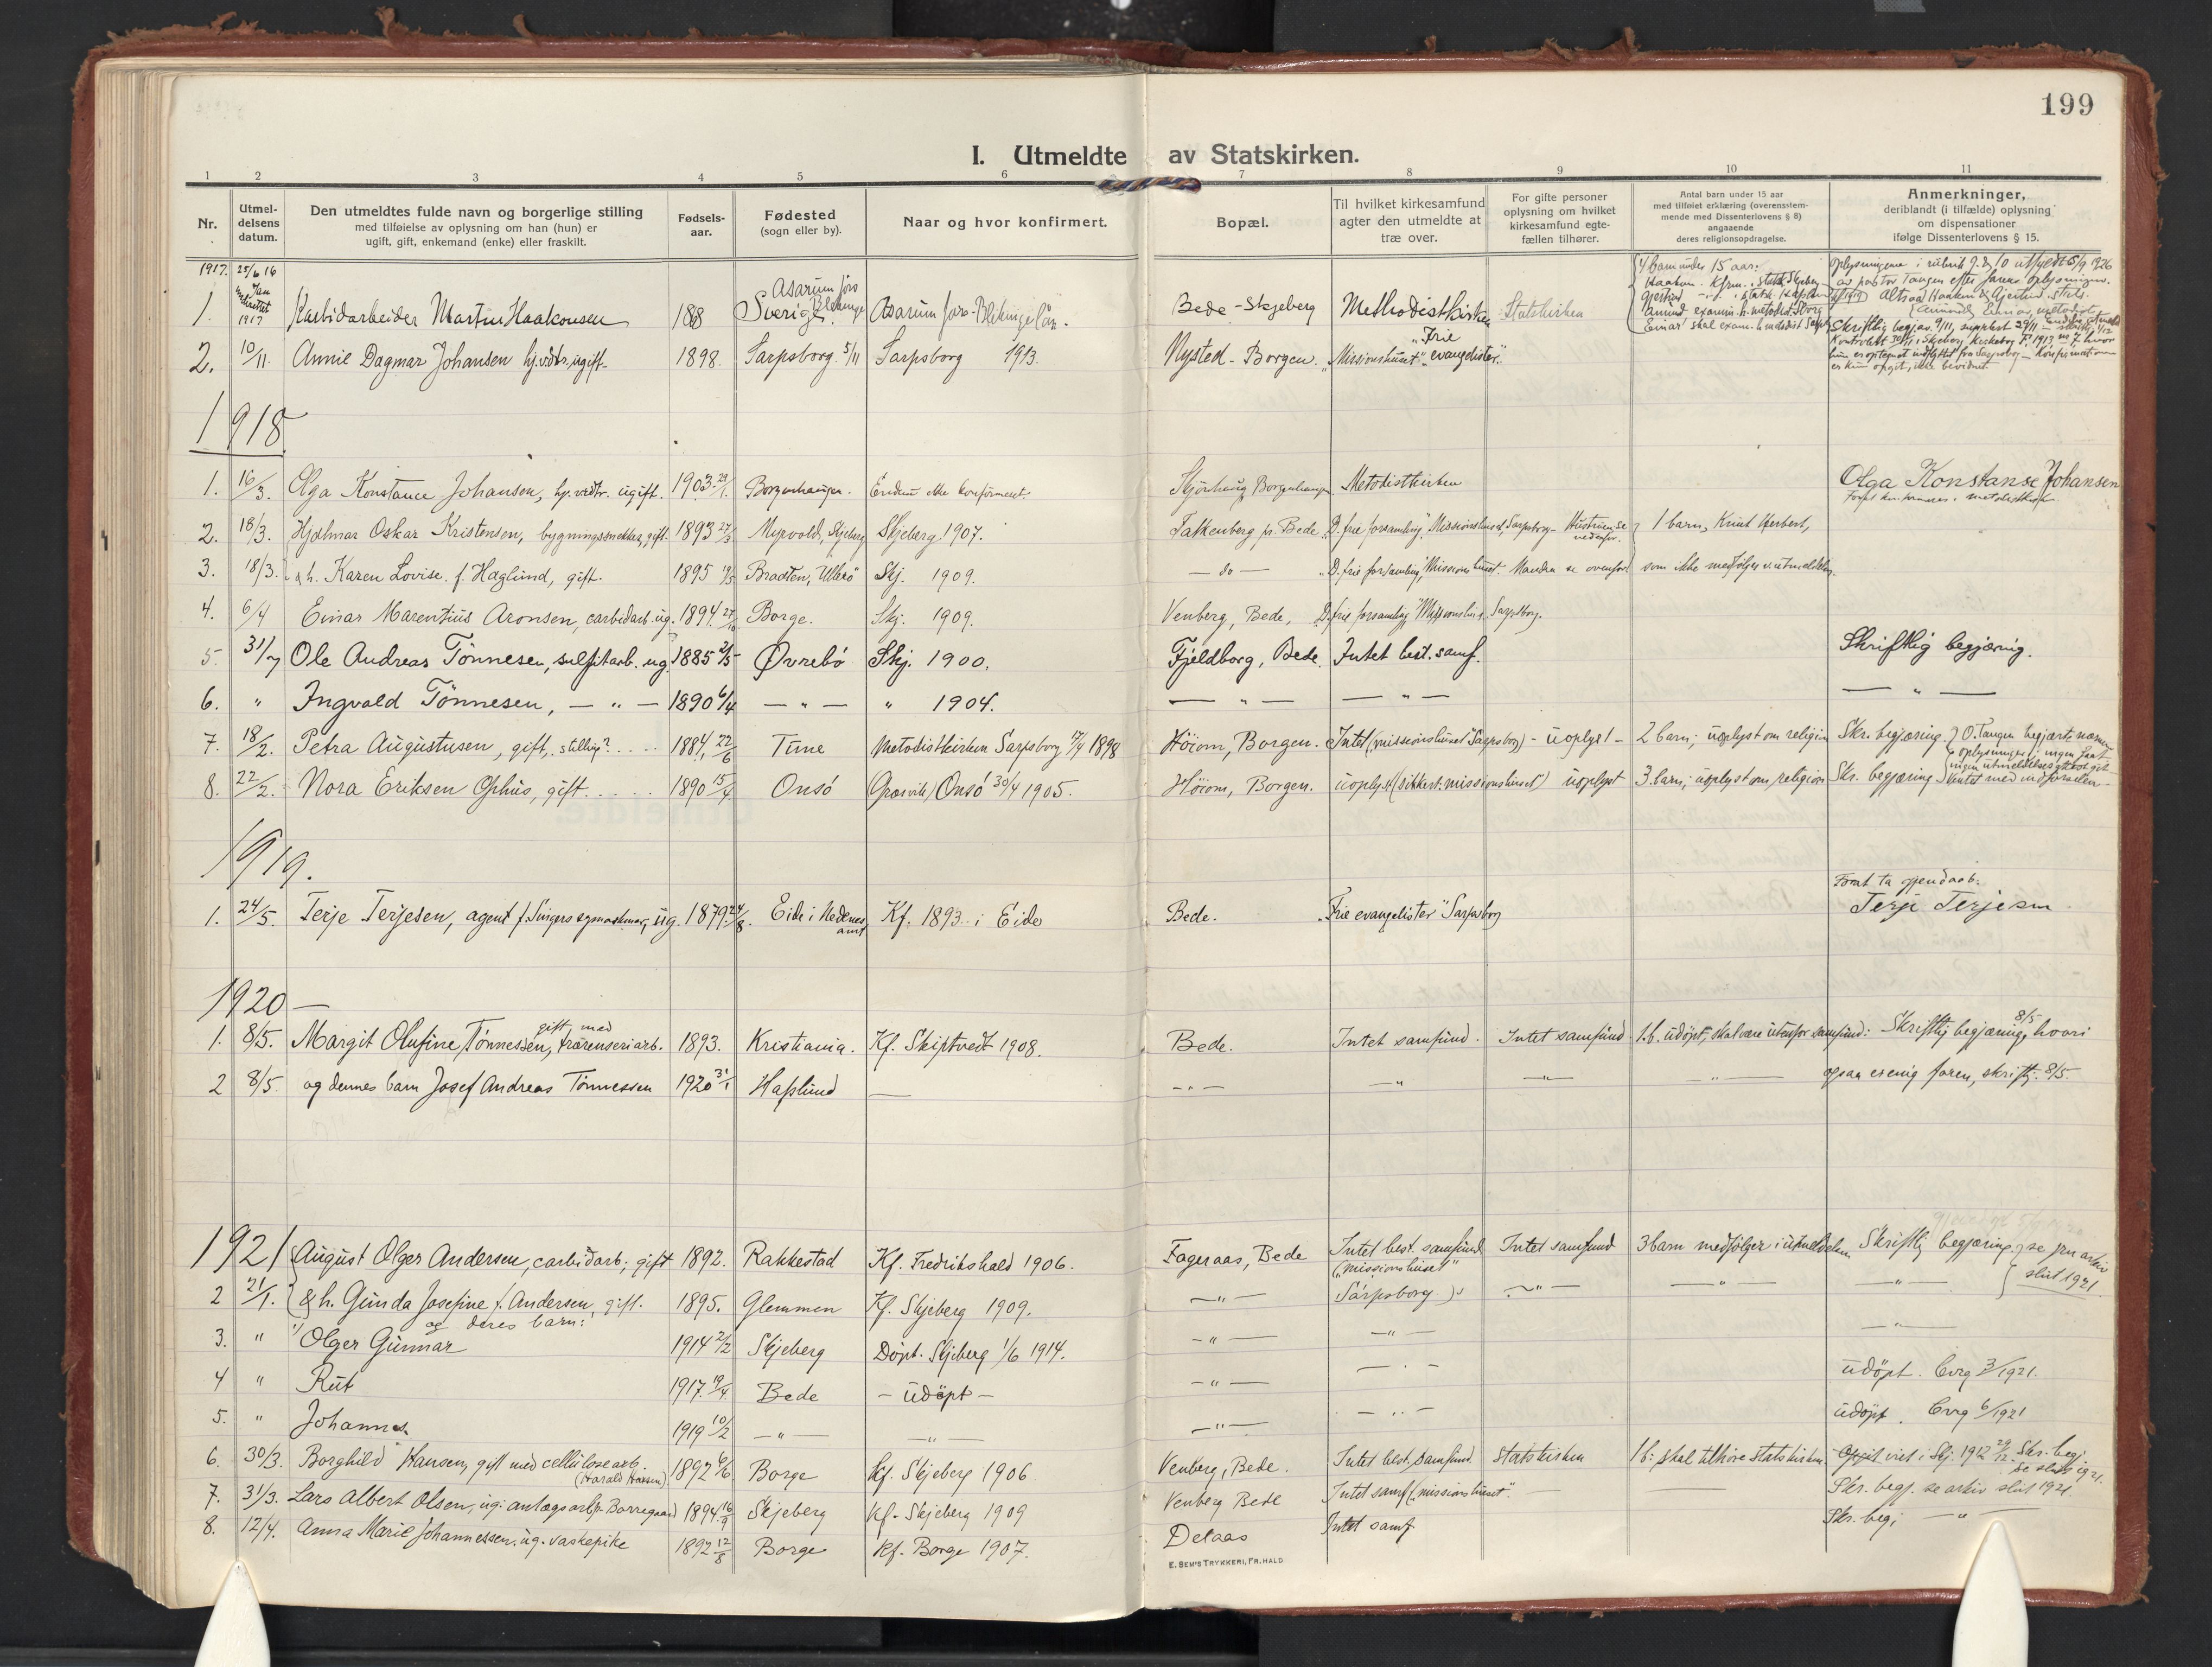 199
I. Utmeldte av Statskirken.
1 2 3 4 5 6 7 8 9 10 11
Nr.
Utmel-
delsens
datum.
Den utmeldtes fulde navn og borgerlige stilling
med tilføielse av oplysning om han (hun) er
ugift, gift, enkemand (enke) eller fraskilt.
Fødsels-
aar.
Fødested
(sogn eller by).
Naar og hvor konfirmert.
Bopæl.
Til hvilket kirkesamfund
agter den utmeldte at
træ over.
For gifte personer
oplysning om hvilket
kirkesamfund egte-
fællen tilhører.
Antal barn under 15 aar
med tilføiet erklæring (overensstem-
mende med Dissenterlovens § 8)
angaaende
deres religionsopdragelse.
Anmerkninger,
deriblandt (i tilfælde) oplysning
om dispensationer
ifølge Dissenterlovens § 15.
1917. 25/6 16
1. 1917 Karbidarbeider Martin Haakonsen Sverige Asarum Bede - Skjeberg Methodistkirken Statskirken
4 barn under 15 aar:
2. 10/11. Annie Dagmar Johansen hj.v.dtr. ugift. 1898. Sarpsborg. 5/11 Sarpsborg 1913. Nysted - Borgen. "Missionshuset" "Frie evangelister".
1918
1. 16/3. Olga Konstance Johansen, hj.v.dtr. ugift. 1903. Borgenhaugen. Endnu ikke konfirmeret. Metodistkirken Olga Konstanse Johansen
2. 18/3. Hjalmar Oskar Kristensen, bygningssnekker, gift. 1893 Myrvold, Skjeberg Skjeberg 1907. Falkenberg pr. Bede "D. frie forsamling", Missionshuset, Sarpsborg - Hustruen se nedenfor. 1 barn, Knut Herbert,
3. 18/3. & h. Karen Lovise f. Haglund, gift. 1895 Skj. 1909. - do - "D. frie forsamling", Missionshuset. Manden se ovenfor som ikke medfølger v. utmeldelsen.
4. 6/4 Einar Marentius Aronsen, carbidarb. ug. 1894. Borge. Skj. 1909. Venberg, Bede, D. frie forsamling "Missionshus. Sarpsborg.
5. 31/7 Ole Andreas Tönnesen, sulfitarb. ug. 1885 Øvrebö Skj. 1900. Fjeldborg, Bede. Intet best. samf. Skriftlig begjæring.
6. " Ingvald Tönnesen, — " — 1890 6/4 — " — " 1904. — " — — " — — " —
7. 18/2. Petra Augustusen, gift, stilling? .... 1884, 22/6 Tune Metodistkirken Sarpsborg 1898 Höiom, Borgen. Intet (missionshuset Sarpsborg) - uoplyst - 2 barn; uoplyst om religion Skr. begjæring.
8. 22/2. Nora Eriksen Ophus, gift..... 1890 15/4. Onsö (Græsvik) Onsö 30/4 1905. Höiom, Borgen. uoplyst (sikkert missionshuset) uoplyst 3 barn; uoplyst om religion Skr. begjæring
1919.
1. 24/5. Terje Terjesen, agent f. Singers symaskiner, ug. 1879. 24/8. Eide i Nedenes amt Kf. 1893 i Eide Bede. "Frie evangelister" Sarpsborg Terje Terjesen
1920 —
1. 8/5. Margit Olufine Tönnesen, gift med 1893. Kristiania. Kf. Skiptvedt 1908. Bede. Intet samfund. Intet samfund 1 b. udöpt, skal være utenfor samfund: Skriftlig begjæring 8/5, hvori
2 8/5. og dennes barn Josef Andreas Tönnessen 1920 31/1 Hafslund — - " - — " — " — " ogsaa er enig faren, skriftl. 8/5.
1921 August Olger Andersen, carbidarb; gift 1892. Rakkestad Kf. Fredrikshald 1906. Fageraas, Bede Intet best. samfund ("missionshuset" Intet samfund 3 barn medfölger i utmeldelsen Skriftlig begjæring. se pr.m arkiv
2 21/1. & h. Gunda Josefine f. Andersen, gift. 1895. Glemmen Kf. Skjeberg 1909. — " — Sarpsborg) — " — — " — — " — slut 1921.
og deres barn:
3. " Olger Gunnar 1914 2/2 Skjeberg Döpt. Skjeberg 1/6 1914. — " — — " — — " —
4 " Rut 1917. 19/4. Bede - udöpt - — " — udöpt. Cirg 3/1921.
5. " Johannes 1919 10/2 — " — — " — — " — udöpt. Cirg 6/1921
6. 30/3. Borghild Hansen, gift med cellulosearb. (Harald Hansen) 1892 Borge Kf. Skjeberg 1906 Venberg, Bede. Intet best. samfund. Statskirken 1 b: skal tilhöre statskirken. Opgit viet i Skj. 1912 Skr. begj. se slut 1921.
7. 31/3. Lars Albert Olsen, ug. anlægsarb. Borregaard 1894. 16/9 Skjeberg Kf. Skjeberg 1909 Venberg Bede Intet samf. ("missionshuset". — Skr. begj. se arkiv slut 1921
8. 12/4. Anna Marie Johannessen. ug. vaskepike 1892 12/8 Borge Kf. Borge 1907. Delaas Intet samf Skr. begj — " —
E. SEM'S TRYKKERI, FR.HALD